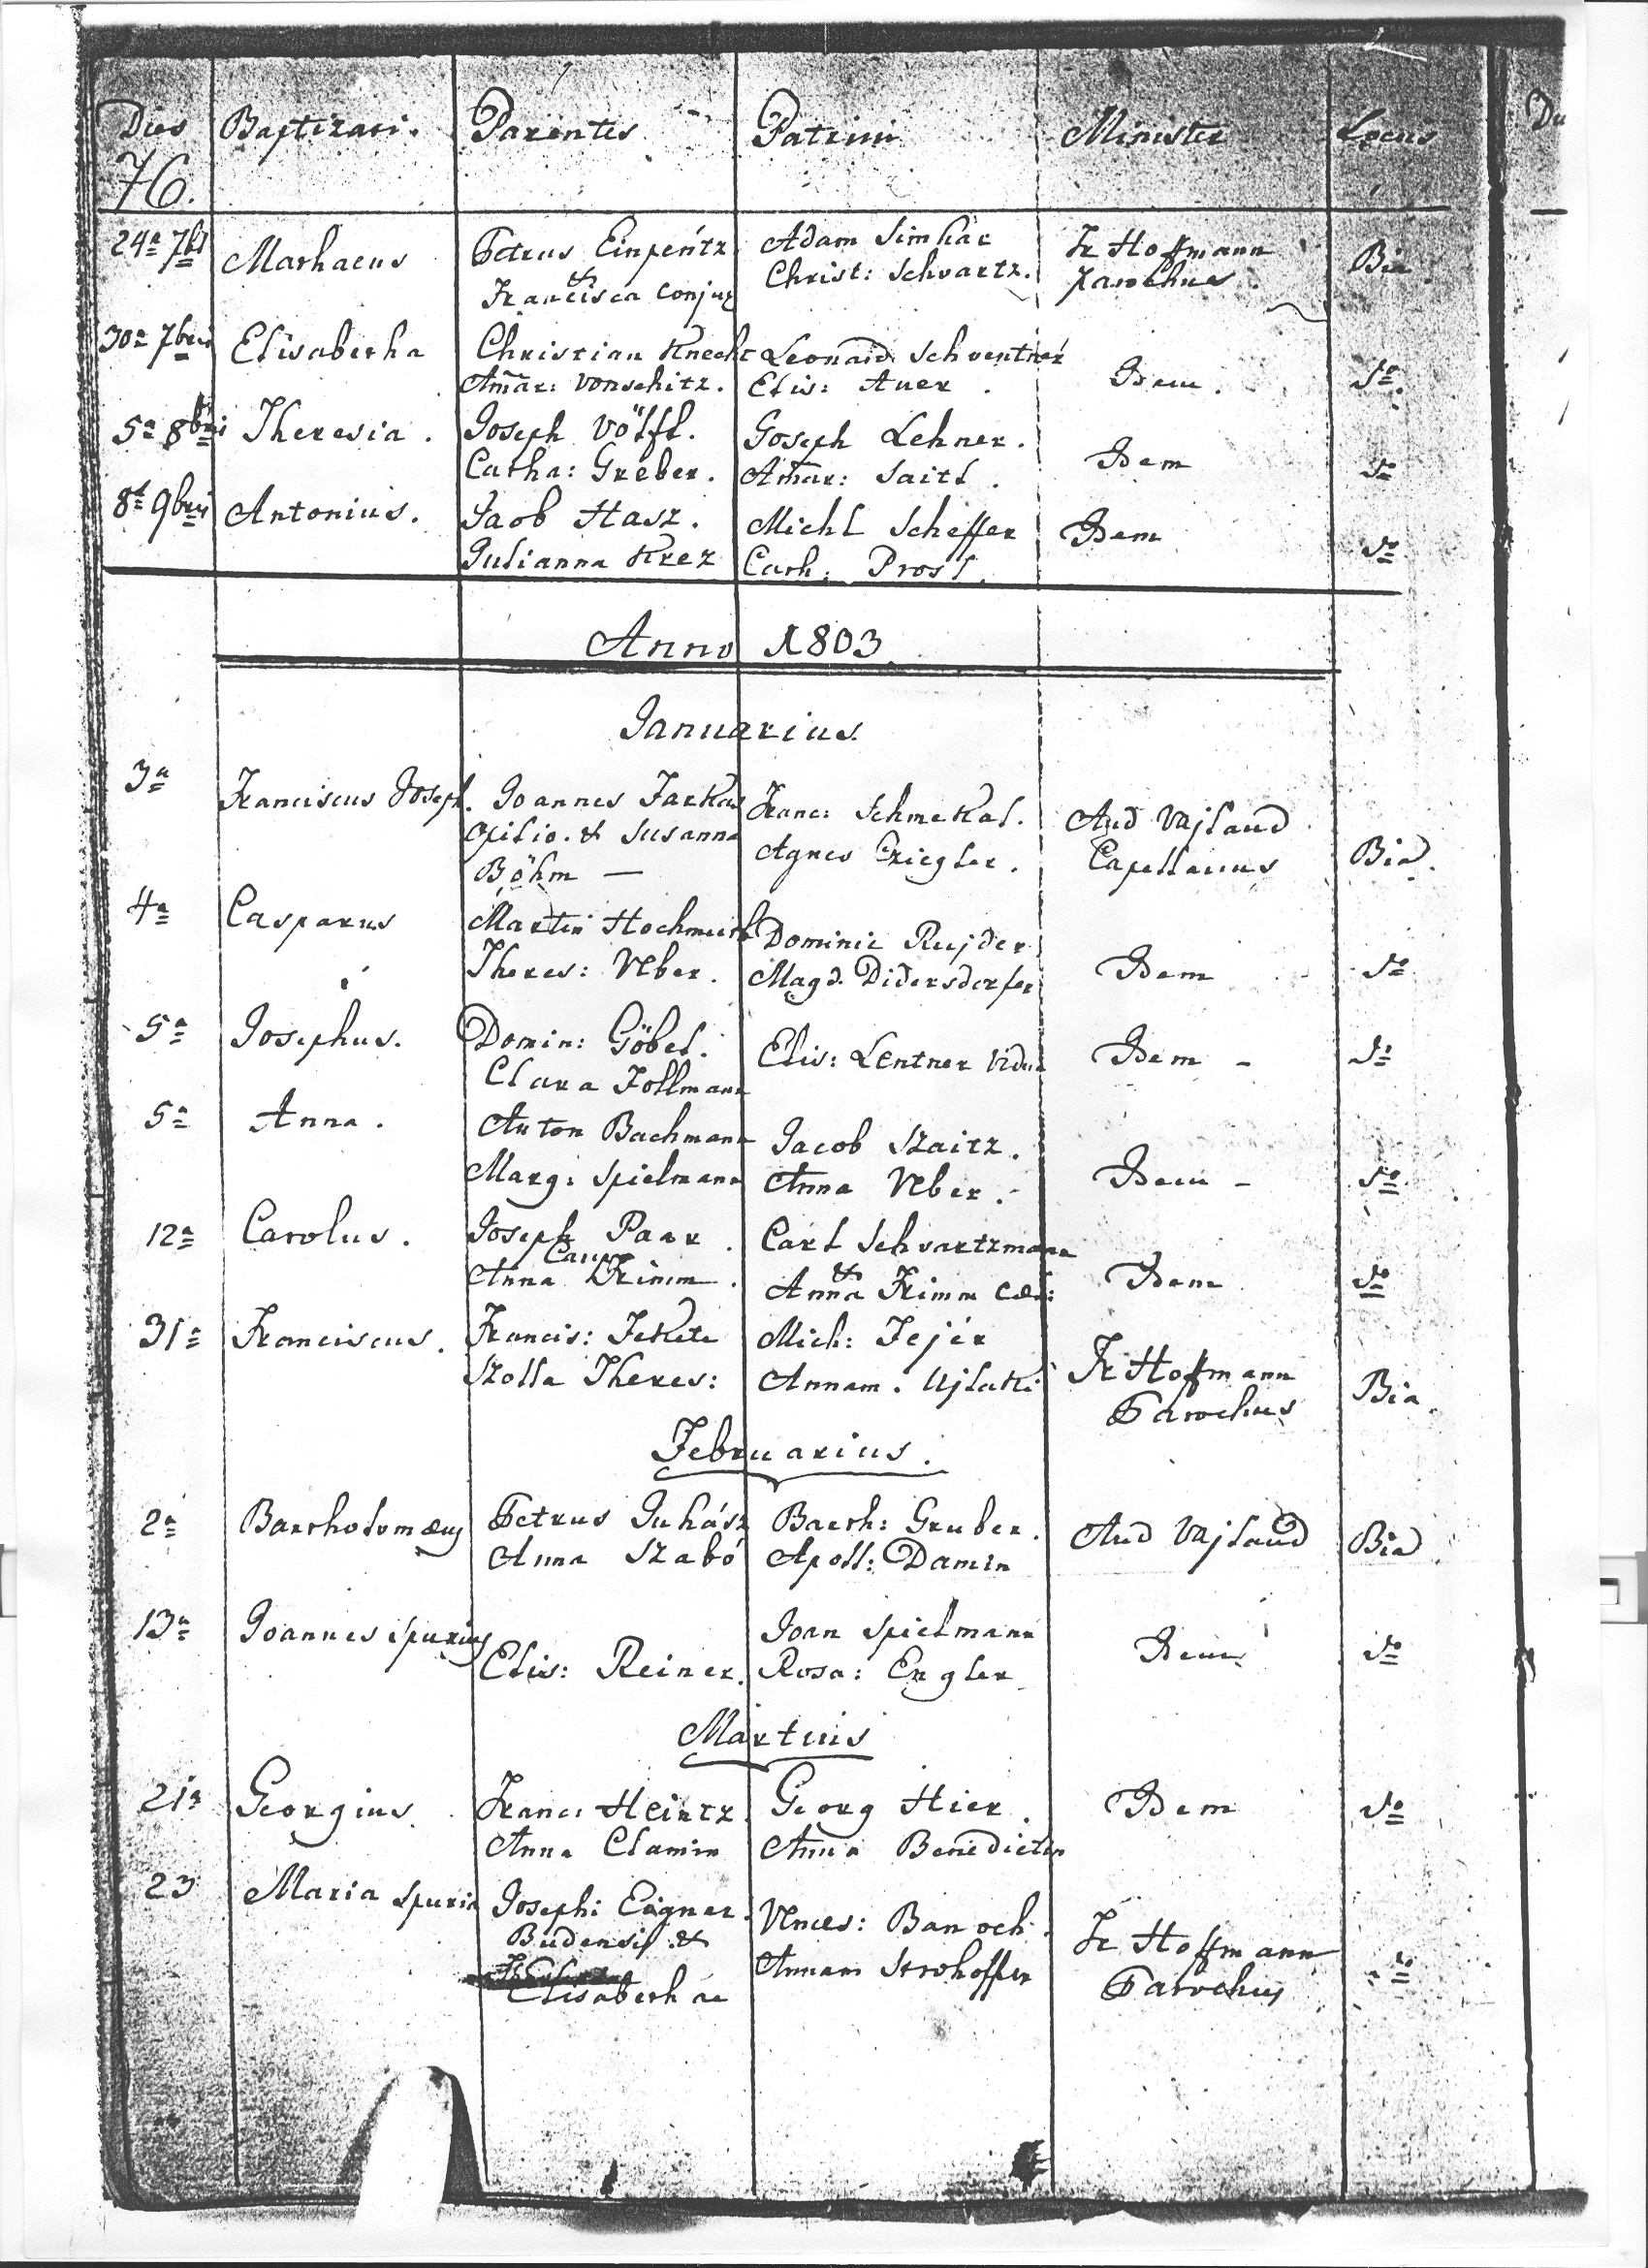 Dies Baptizati. Parentes Patrini Minister Locus
76.
24ª 7bris Mathaeus Petrus Einpentz Adam Simhar Fr Hoffmann Bia
& Francisca conjux Christ: Schvartz. parochus
30ª 7bris Elisabetha Christian Knecht Leonard Schventner
Amar: Vonschitz. Elis: Auer. Idem. do.
5ª 8bris Theresia. Joseph Völfl. Joseph Lehner.
Catha: Greber. Amar: Saitl. Idem do
8ª 9bris Antonius. Jaob Hasz. Michl Scheffer Idem do
Julianna Krez Cath: Prosl.
Anno 1803
Januarius.
3ª Franciscus Joseph. Joannes Farkas Franc: Schmekal. And Vajland
opilio. & Susanna Agnes Criegler. Capellanus Bia.
Böhm —
4ª Casparus Martin Hochmuth Dominic Rujder
Theres: Veber. Magd. Didersdorfer Idem do
5ª Josephus. Domin: Göbel. Elis: Lentner vidua Idem - do
Clara Follmann
5ª Anna. Anton Bachmann Jacob Szaitz.
Marg: Spielmann Anna Veber. Idem - do.
12ª Carolus. Joseph Paar. Carl Schvartzmann
Anna Krimm. & Anna Krimm cael: Idem do
31ª Franciscus. Francis: Fekete Mich: Fejér
Szolla Theres: Annam. Ujlaki Fr Hoffmann Bia.
Parochus
Februarius.
2ª Bartholomæus Petrus Juhász Barth: Gruber. And Vajland Bia
Anna Szabó Apoll: Damin
13ª Joannes spurius Joan Spielmann
Elis: Reiner. Rosa: Engler Idem do
Martius
21ª Georgius. Franc: Heintz Georg Hier. Idem do
Anna Clamin Anna Benedictin
23 Maria Spuria Joseph: Eigner. Vences: Banoch. Fr Hoffmann do
Budensis & Annam Strohoffer Parochus
Elisabethae